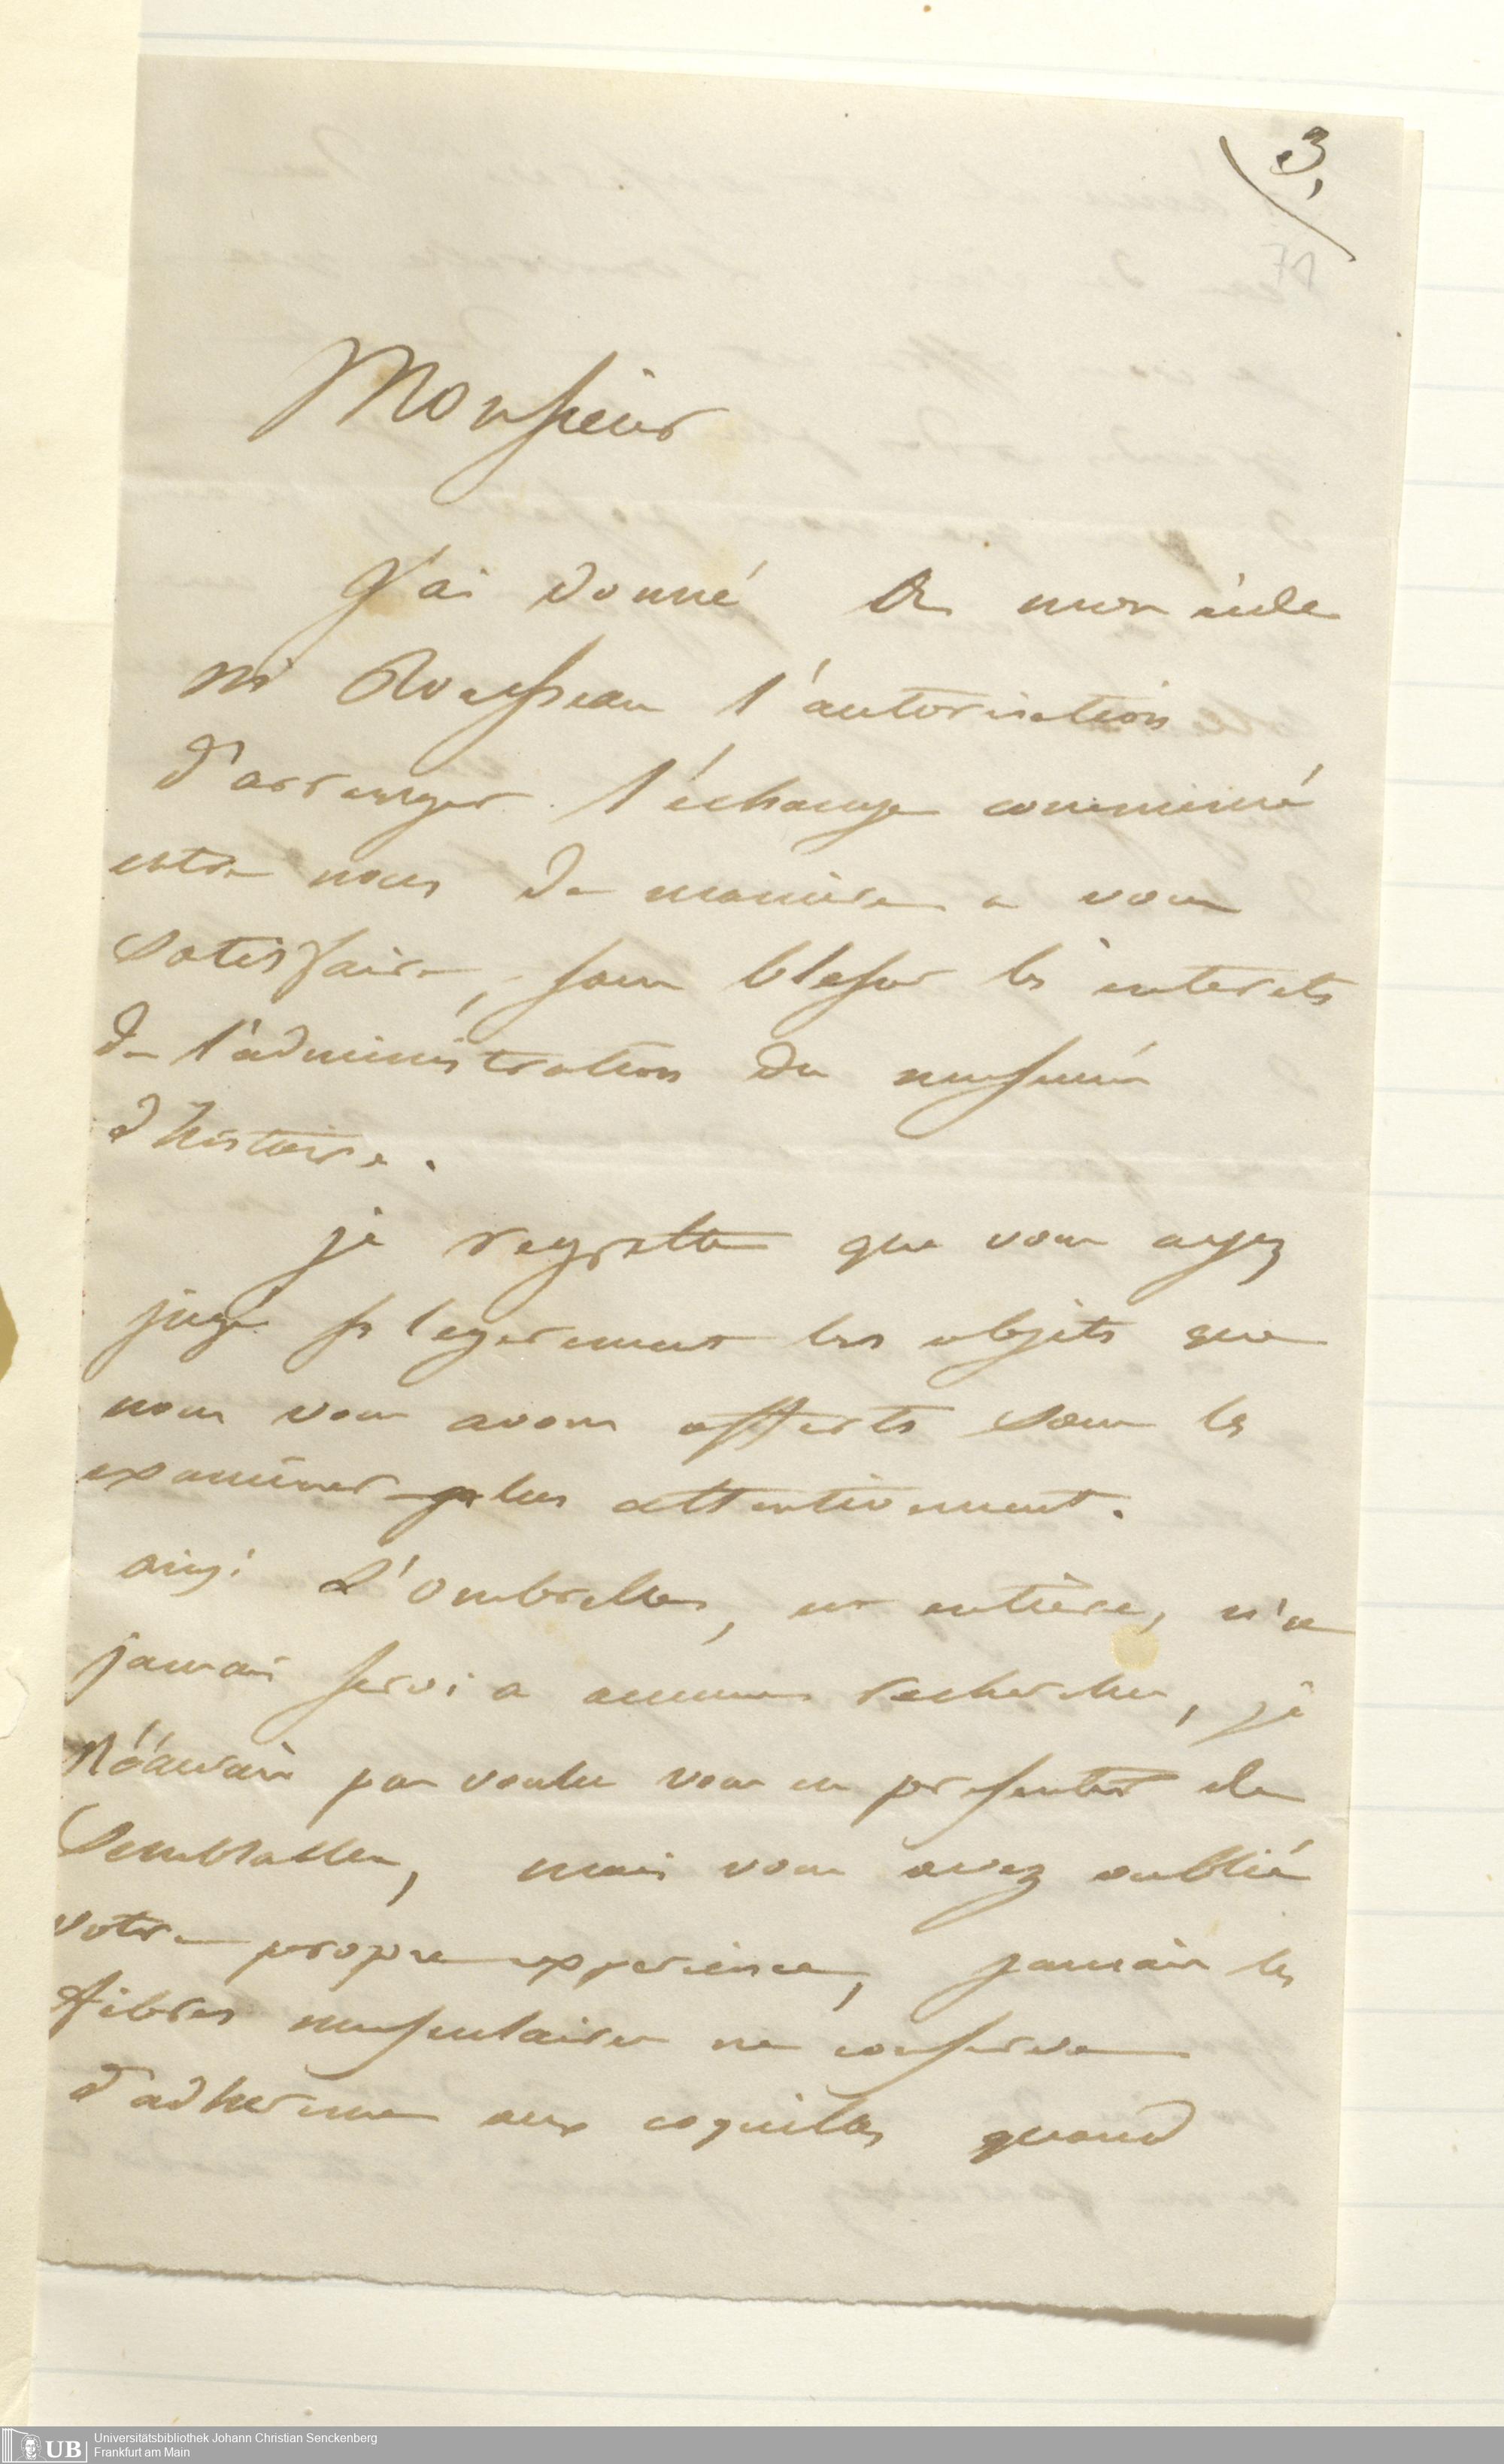 3,
Monsieur
J'ai donné a mon aide
Mr Rousseau l'autorisation
d'arranger l'échange commencé
entre nous de maniere a vous
satisfaire, sans blesser les interets
de l'administration du museum
d'histoire.
je regrette que vous ayez
jugé si legerement les objets que
nous vous avons offerts sans les
examiner plus attentionment.
ainsi L'ombrelle, est entière, n'a
jamais servi a aucunes recherches, je
n'aurais pas voulu vous en presenter de
semblables, mais vous avez oublié
votre propre experience, jamais les
fibres musculaires ne conserve
d'adherence aux coquilles quand
Universitätsbibliothek Johann Christian Senckenberg
Frankfurt am Main
UB